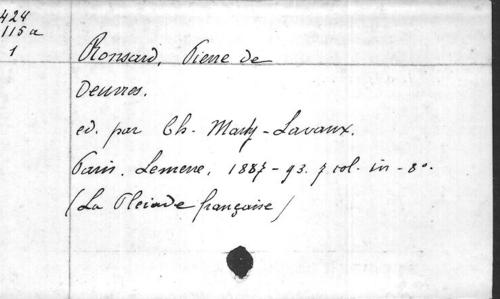 424
115a
1
Ronsard, Pierre de
Oeuvres.
ed. par Ch. Marty-Lavaux.
Paris. Lemerre, 1887-93. 7 vol. in-8°.
(La Pleiade française)